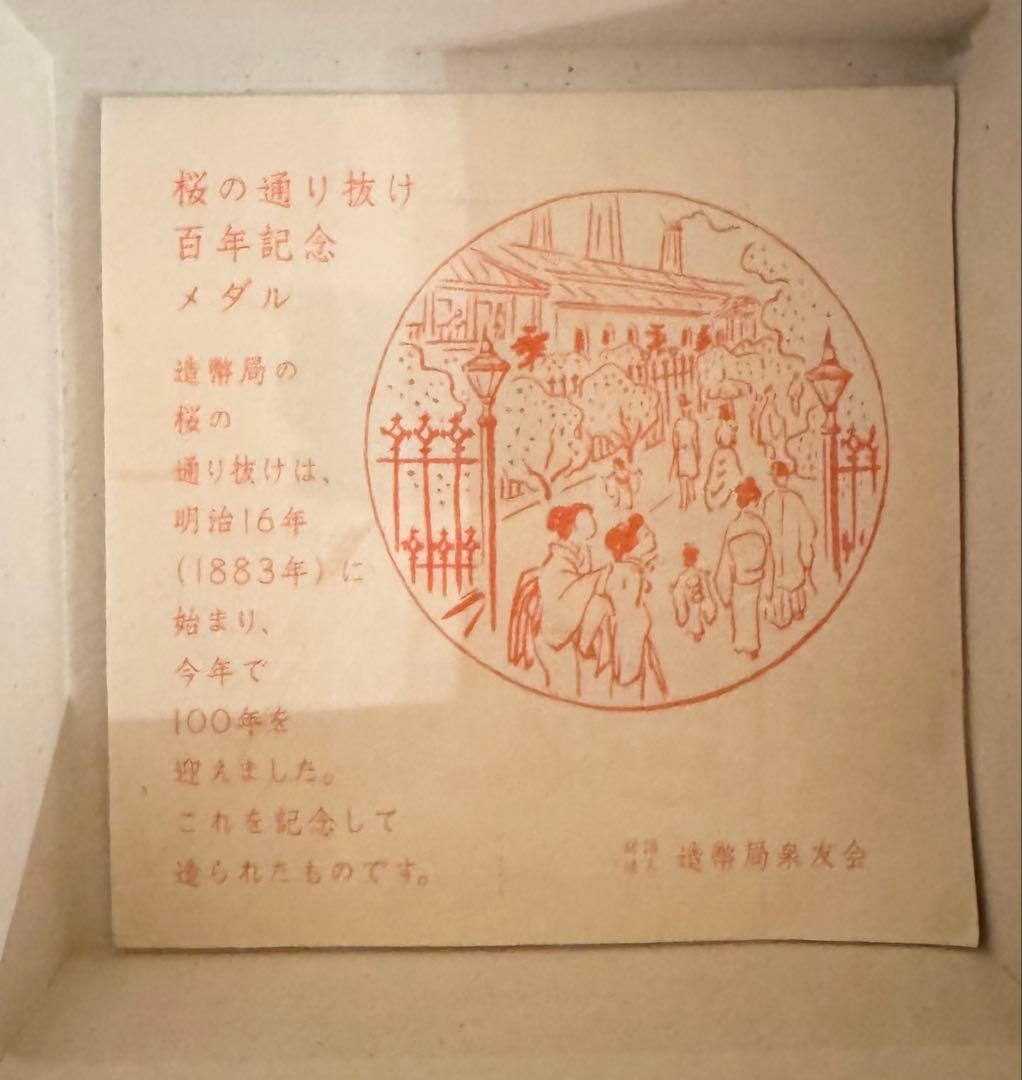 桜の通り抜け
百年記念
メダル
造幣局の
桜の
通り抜けは、
明治16年
(1883年)に
始まり、
今年で
100年を
迎えました。
これを記念して
造られたものです。
財団法人 造幣局泉友会